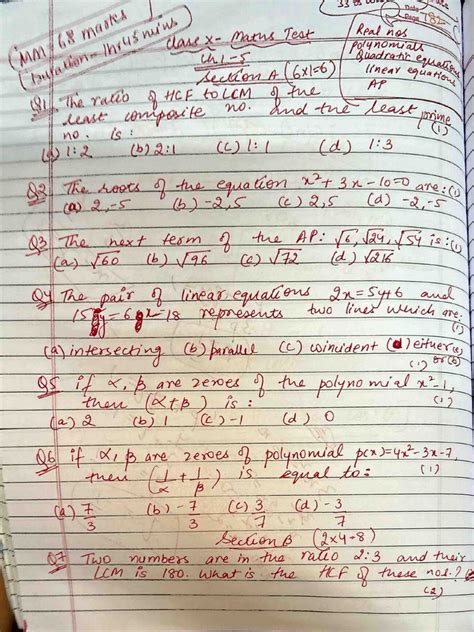 33
Date
Page 182
MM- 68 marks
Duration- 1hr45mins
Class X- Maths Test
Ch 1-5
Section A (6x1=6)
Real nos
Polynomials
Quadratic equations
linear equations
AP
Q1 The ratio of HCF to LCM of the
least composite no. and the least prime
no. is: (1)
(a) 1:2 (b) 2:1 (c) 1:1 (d) 1:3
Q2 The roots of the equation x²+3x-10=0 are: (1)
(a) 2,-5 (b) -2,5 (c) 2,5 (d) -2,-5
Q3 The next term of the AP: √6, √24, √54 is: (1)
(a) √60 (b) √96 (c) √72 (d) √216
Q4 The pair of linear equations 2x=5y+6 and
15y=6x-18 represents two lines which are:
(a) intersecting (b) parallel (c) coincident (d) either (a)
(1) or (b)
Q5 if α, β are zeroes of the polynomial x²-1,
then (α+β) is: (1)
(a) 2 (b) 1 (c) -1 (d) 0
Q6 if α, β are zeroes of polynomial p(x)=4x²-3x-7,
then (1/α + 1/β) is equal to: (1)
(a) 7/3 (b) -7/3 (c) 3/7 (d) -3/7
Section B (2x4=8)
Q7 Two numbers are in the ratio 2:3 and their
LCM is 180. what is the HCF of these nos.?
(2)